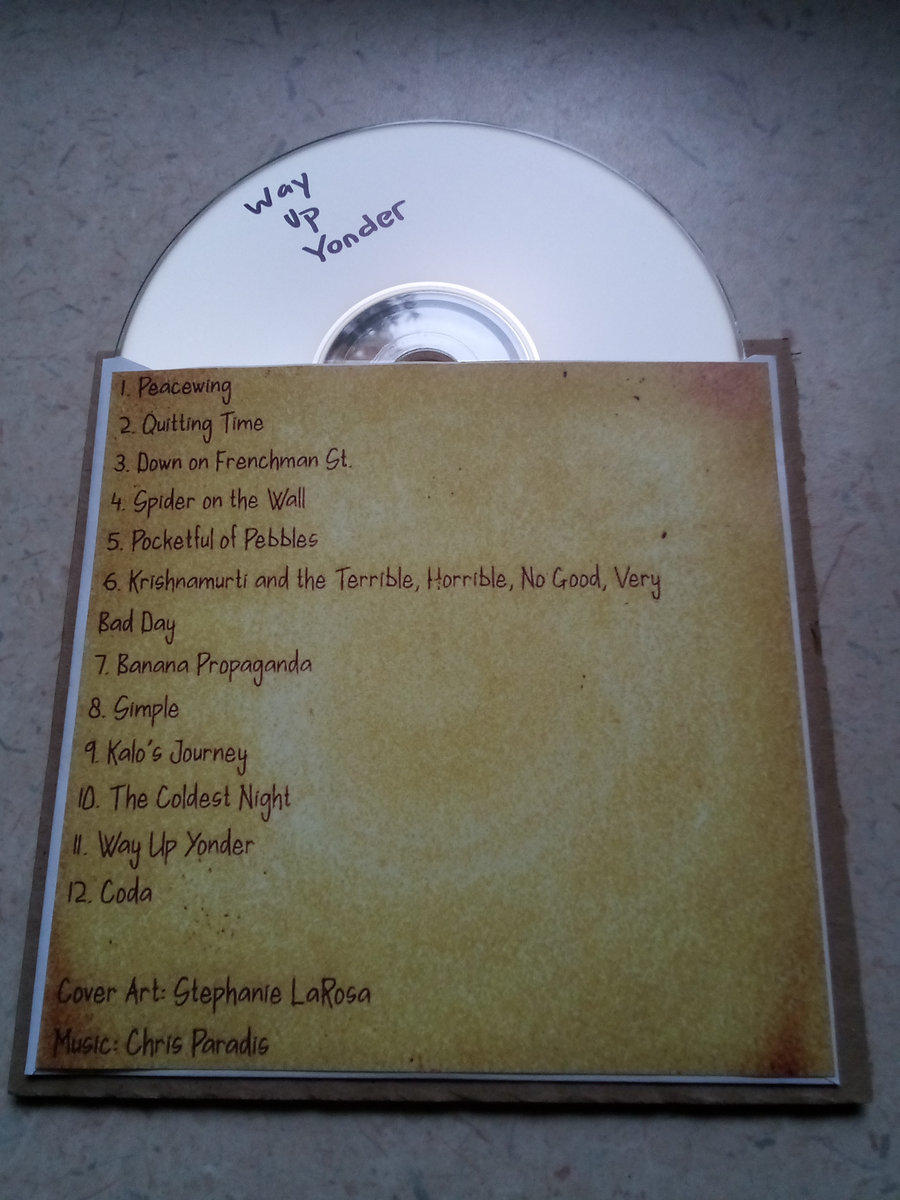 Way
Up
Yonder
1. Peacewing
2. Quitting Time
3. Down on Frenchman St.
4. Spider on the Wall
5. Pocketful of Pebbles
6. Krishnamurti and the Terrible, Horrible, No Good, Very
Bad Day
7. Banana Propaganda
8. Simple
9. Kalo's Journey
10. The Coldest Night
11. Way Up Yonder
12. Coda
Cover Art: Stephanie LaRosa
Music: Chris Paradis